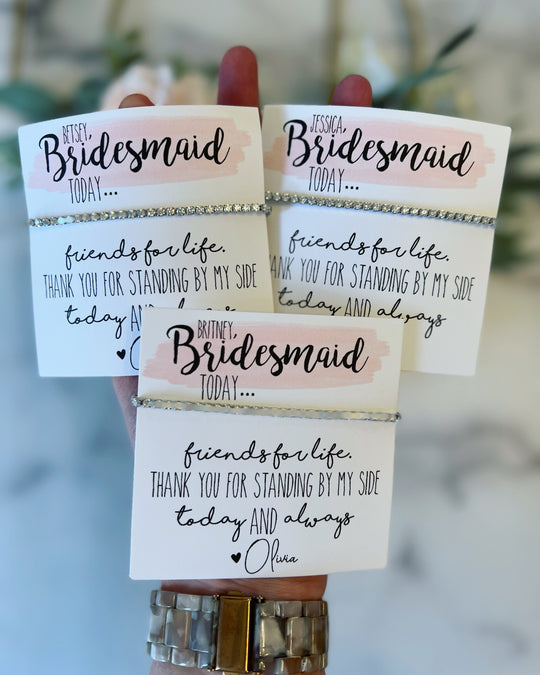 BETSEY,
Bridesmaid
TODAY...
friends for life.
THANK YOU FOR STANDING BY MY SIDE
today AND always
JESSICA,
Bridesmaid
TODAY...
friends for life.
THANK YOU FOR STANDING BY MY SIDE
today AND always
BRITNEY,
Bridesmaid
TODAY...
friends for life.
THANK YOU FOR STANDING BY MY SIDE
today AND always
♥ Olivia